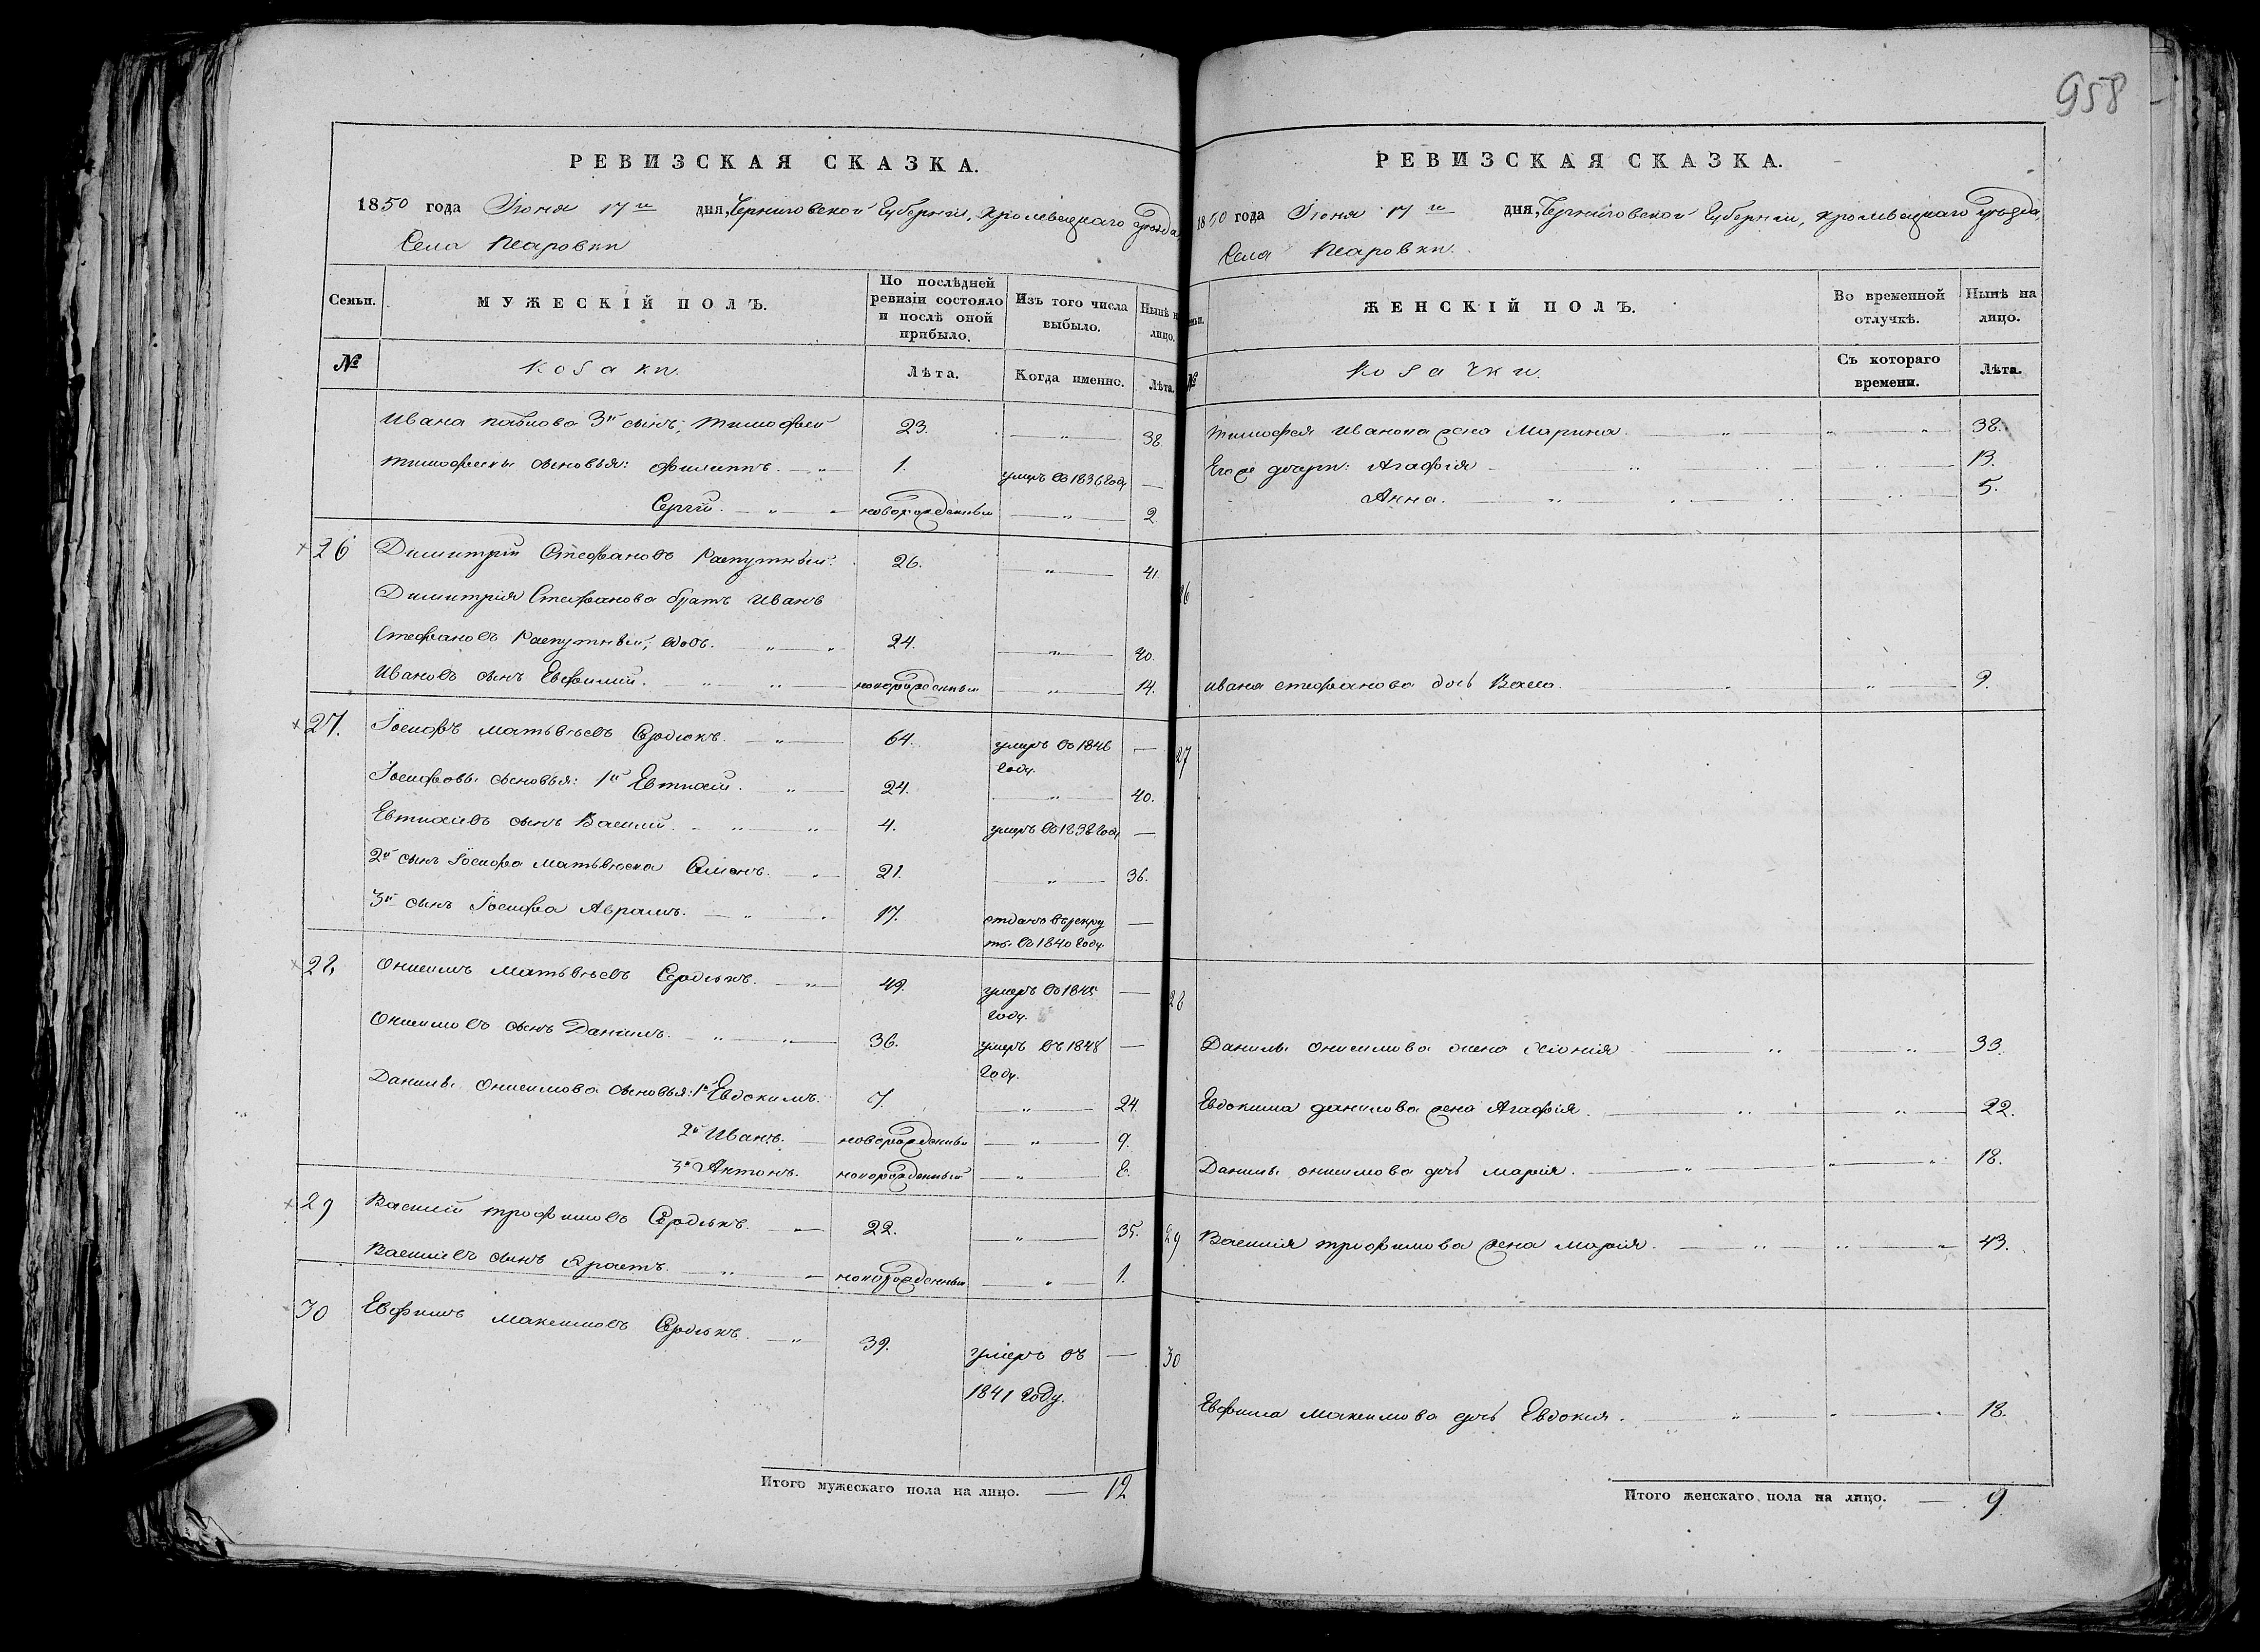 958
РЕВИЗСКАЯ СКАЗКА.
1850 года Іюня 17го дня, Черниговской Губерніи, Кролевецкаго уѣзда,
Села
Семьи.
МУЖЕСКІЙ ПОЛЪ.
По послѣдней ревизіи состояло и послѣ оной прибыло.
Изъ того числа выбыло.
Нынѣ на лицо.
№
Козаки.
Лѣта.
Когда именно.
Лѣта.
Ивана 3й сынъ, Тимофей 23. — „ — 38
Тимофеевы сыновья: Филиппъ. — „ 1. умеръ въ 1836 году —
Сергій. — „ — „ новорожденный — „ — 2
26 Димитрій Стефановъ Распутный. 26. — „ — 41.
Димитрія Стефанова братъ Иванъ
Стефановъ Распутный, вдовъ. — „ — „ 24. — „ — 40.
Ивановъ сынъ Евфимій. — „ — „ — новорожденный — „ — 14.
27. Іосифъ Матвѣевъ Сердюкъ. — „ — 64. умеръ въ 1846 —
году.
Іосифовы сыновья: 1й — „ — 24. — „ — 40.
сынъ Василій. — „ — „ 4. умеръ въ 1838 году —
2й сынъ Іосифа Матвѣева — „ 21. — „ — 36.
3й сынъ Іосифа Аврамъ. — „ — „ 17. отданъ въ рекру —
ты въ 1840 году.
28. Онисимъ Матвѣевъ Сердюкъ. — „ — 49. умеръ въ 1845 —
году.
Онисимовъ сынъ Данилъ. — „ — „ — 36. умеръ въ 1848 —
году.
Данилы Онисимова сыновья: 1й Евдокимъ. 7. — „ — 24.
2й Иванъ. — новорожденный — „ — 9.
3й Антонъ. новорожденный — „ — 8.
29 Василій Трофимовъ Сердюкъ. — „ — 22. — „ — 35.
Васильевъ сынъ — „ — „ новорожденный — „ — 1.
30 Евфимъ Максимовъ Сердюкъ. — „ — 39. умеръ въ —
1841 году.
Итого мужескаго пола на лицо. — 12
РЕВИЗСКАЯ СКАЗКА.
1850 года Іюня 17го дня, Черниговской Губерніи, Кролевецкаго уѣзда,
Села
ЖЕНСКІЙ ПОЛЪ.
Во временной отлучкѣ.
Нынѣ на лицо.
№
Козачки.
Съ котораго времени.
Лѣта.
Тимофея Иванова жена Марина. „ — „ — „ — 38.
Его же дочери: Агафія — „ — „ — „ — 13.
Анна. — „ — „ — „ — 5.
26
Ивана Стефанова дочь Васса. — „ — „ — 9.
27
28
Данилы Онисимова жена — „ — „ — 33.
Евдокима Данилова жена Агафія. — „ — „ — 22.
Данилы Онисимова дочь Марія. — „ — „ — „ 18.
29 Василія Трофимова жена Марія. — „ — „ — „ 43.
30
Евфима Максимова дочь Евдокія. — „ — „ — „ 18.
Итого женскаго пола на лицо. — 9